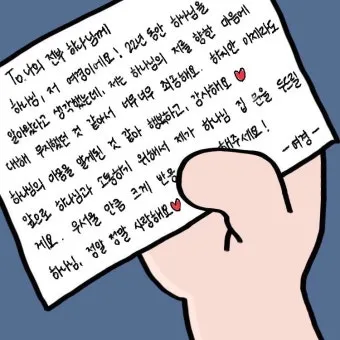 To. 나의 전부 하나님께
하나님, 저 여경이에요! 22년 동안 하나님을
알아왔다고 생각했는데, 저는 하나님의 저를 향한 마음에
대해 무지했던 것 같아서 너무너무 죄송해요. 하지만 이제라도
하나님의 마음을 알게된 것 같아 행복하고, 감사해요♥
앞으로 하나님과 교통하기 위해서 제가 하나님 집 문을 두드릴
게요. 우서울 만큼 크게 반응해주세요!
하나님, 정말 정말 사랑해요♥ -여경-